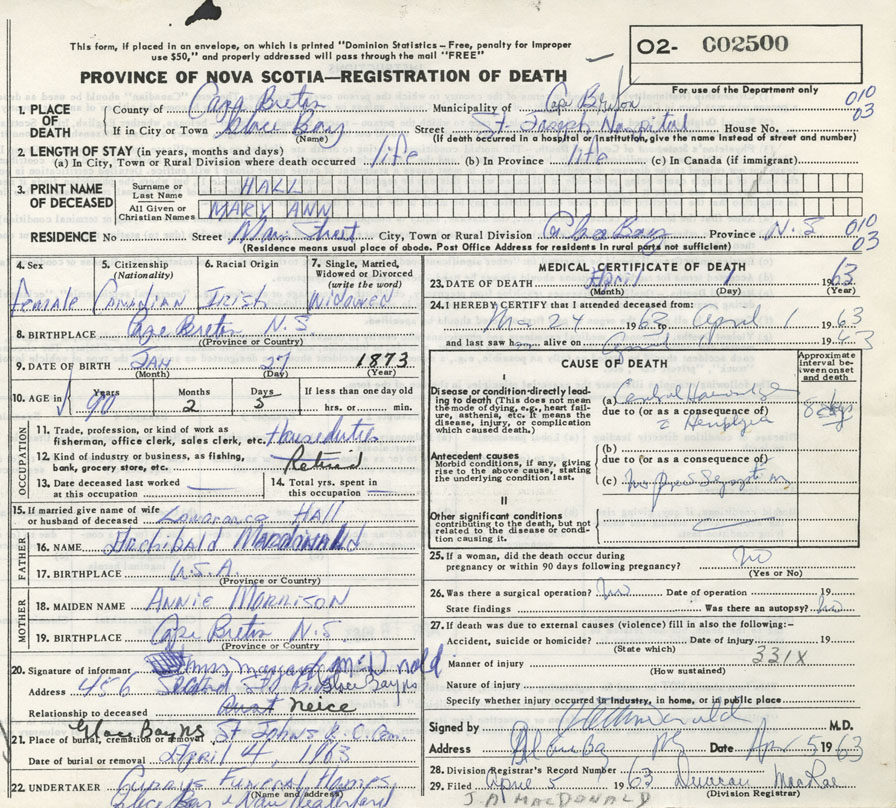 This form, if placed in an envelope, on which is printed "Dominion Statistics – Free, penalty for Improper
use $50," and properly addressed will pass through the mail "FREE"
O2- C02500
PROVINCE OF NOVA SCOTIA—REGISTRATION OF DEATH
For use of the Department only
1. PLACE OF DEATH County of Cape Breton Municipality of Cape Breton 010
If in City or Town Glace Bay (Name) Street St Joseph Hospital House No. 03
(If death occurred in a hospital or institution, give the name instead of street and number)
2. LENGTH OF STAY (in years, months and days)
(a) In City, Town or Rural Division where death occurred life (b) In Province life (c) In Canada (if immigrant)
3. PRINT NAME OF DECEASED Surname or Last Name HALL
All Given or Christian Names MARY ANN
RESIDENCE No Street Main Street City, Town or Rural Division Glace Bay Province N.S 010 03
(Residence means usual place of abode. Post Office Address for residents in rural parts not sufficient)
4. Sex 5. Citizenship (Nationality) 6. Racial Origin 7. Single, Married, Widowed or Divorced (write the word)
Female Canadian Irish Widowed
8. BIRTHPLACE Cape Breton N.S.
(Province or Country)
9. DATE OF BIRTH JAN 27 1873
(Month) (Day) (Year)
10. AGE in Years 90 Months 2 Days 5 If less than one day old hrs. or min.
OCCUPATION
11. Trade, profession, or kind of work as fisherman, office clerk, sales clerk, etc. Houseduties
12. Kind of industry or business, as fishing, bank, grocery store, etc. Retired
13. Date deceased last worked at this occupation
14. Total yrs. spent in this occupation
15. If married give name of wife or husband of deceased Lawrence HALL
FATHER
16. NAME Archibald MacDonald
17. BIRTHPLACE U.S.A.
(Province or Country)
MOTHER
18. MAIDEN NAME ANNIE MORRISON
19. BIRTHPLACE Cape Breton N.S.
(Province or Country)
20. Signature of informant
Address 456 Glace Bay NS
Relationship to deceased Aunt neice
21. Place of burial, cremation or removal Glace Bay NS St Johns R.C. Cem.
Date of burial or removal April 4, 1963
22. UNDERTAKER Currays Funeral Homes
(Name and address)
Glace Bay & New Waterford
MEDICAL CERTIFICATE OF DEATH
23. DATE OF DEATH April 1 1963
(Month) (Day) (Year)
24. I HEREBY CERTIFY that I attended deceased from:
Mar 24 1963 to April 1 1963
and last saw h alive on April 1963
CAUSE OF DEATH
Approximate interval between onset and death
I
Disease or condition directly leading to death (This does not mean the mode of dying, e.g., heart failure, asthenia, etc. It means the disease, injury, or complication which caused death.)
(a) Cerebral Hemorrhage 8 days
due to (or as a consequence of)
Hemiplegia
Antecedent causes
Morbid conditions, if any, giving rise to the above cause, stating the underlying condition last.
(b)
due to (or as a consequence of)
(c)
II
Other significant conditions contributing to the death, but not related to the disease or condition causing it.
25. If a woman, did the death occur during pregnancy or within 90 days following pregnancy? No
(Yes or No)
26. Was there a surgical operation? no Date of operation 19
State findings Was there an autopsy? no
27. If death was due to external causes (violence) fill in also the following:–
Accident, suicide or homicide? Date of injury 19
(State which)
Manner of injury 331X
(How sustained)
Nature of injury
Specify whether injury occurred in industry, in home, or in public place
Signed by M.D.
Address Glace Bay NS Date Apr 5 1963
28. Division Registrar's Record Number
29. Filed April 5 1963 Duncan MacRae
(Division Registrar)
J.A. MACDONALD